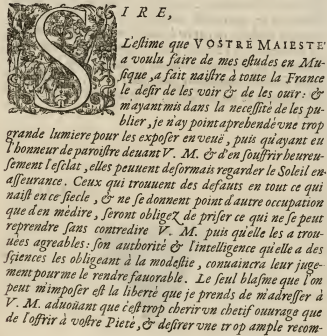 SIRE,
L'estime que VOSTRE MAIESTE'
a voulu faire de mes estudes en Mu-
sique, a fait naistre à toute la France
le desir de les voir & de les ouir: &
m'ayant mis dans la necessité de les pu-
blier, je n'ay point aprehendé vne trop
grande lumiere pour les exposer en veuë, puis qu'ayant eu
l'honneur de paroistre deuant V. M. & d'en souffrir heureu-
sement l'esclat, elles peuuent desormais regarder le Soleil en
asseurance. Ceux qui trouuent des defauts en tout ce qui
naist en ce siecle, & ne se donnent point d'autre occupation
que d'en médire, seront obligez de priser ce qui ne se peut
reprendre sans contredire V. M. puis qu'elle les a trou-
uées agreables: son authorité & l'intelligence qu'elle a des
sciences les obligeant à la modestie, conuaincra leur juge-
ment pour me le rendre fauorable. Le seul blasme que l'on
peut m'imposer est la liberté que je prends de m'adresser à
V. M. aduoüant que c'est trop cherir vn chetif ouurage que
de l'offrir à vostre Pieté, & desirer vne trop ample recom